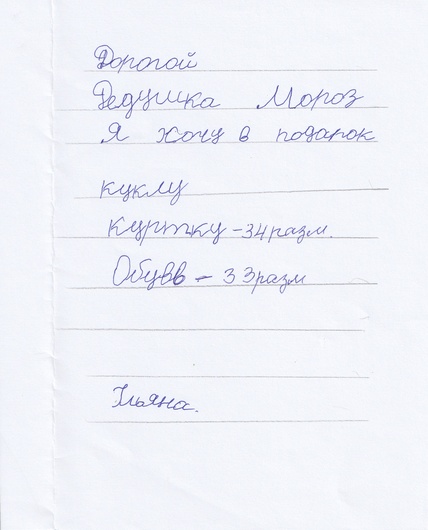 Дорогой
Дедушка Мороз
Я хочу в подарок
куклу
куртку - 34 разм.
Обувв - 33 разм
Ульяна.